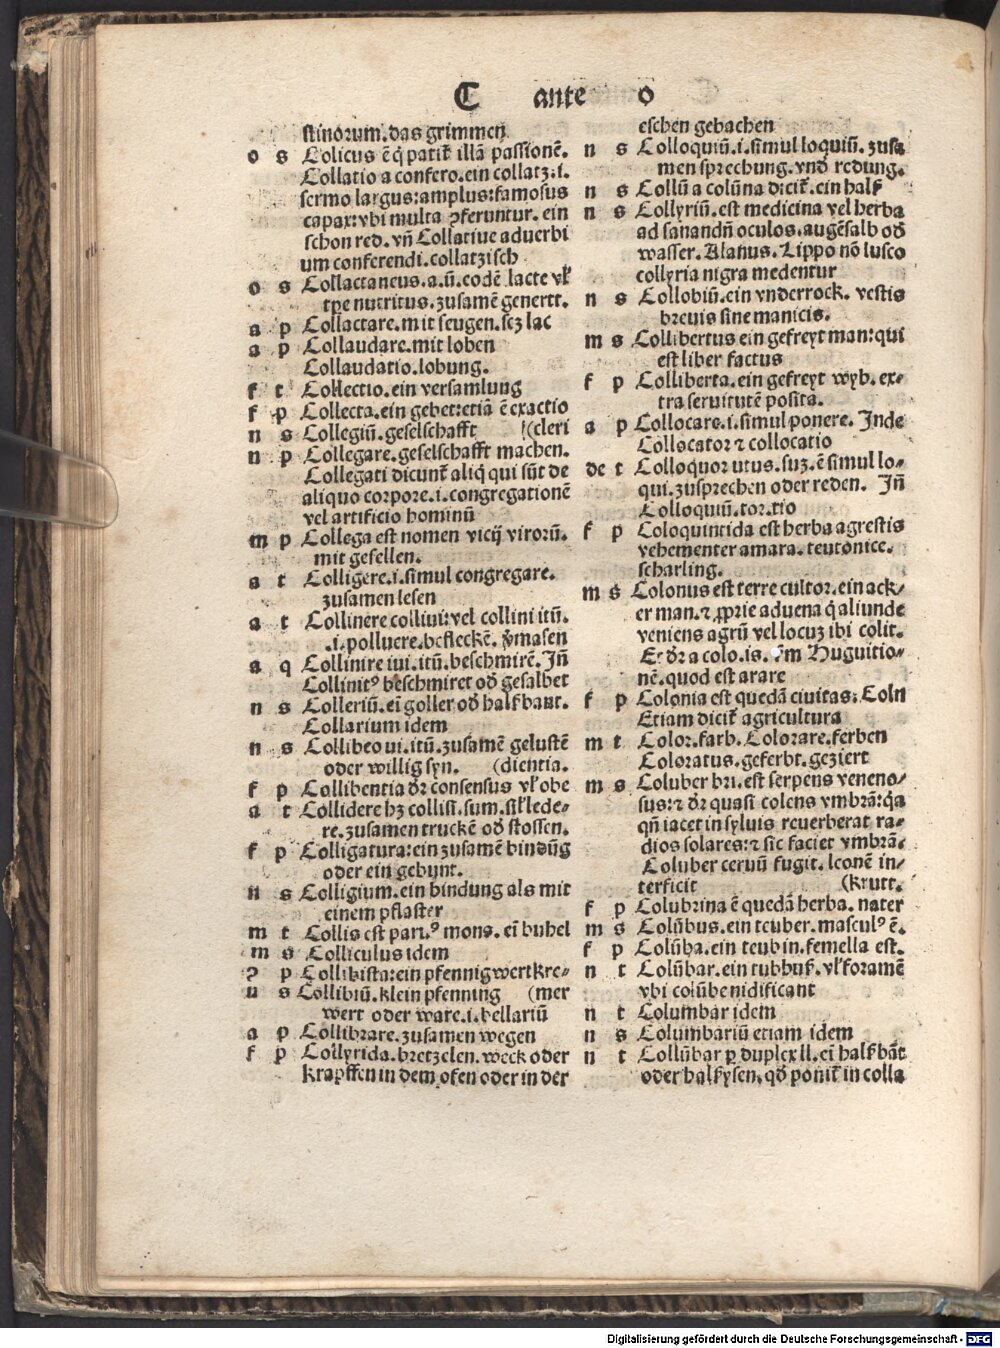 C ante o
stinorum.das grimmen
o s Colicus ē q̄ patit᷑ illā passionē.
Collatio a confero.ein collatz.i.
sermo largus:amplus:famosus
capax:vbi multa ꝯferuntur. ein
schon red. vn̄ Collatiue aduerbi
um conferendi.collatzisch
o s Collactaneus.a.ū.codē lacte vl᷑
tpe nutritus.zusamē genertt.
a p Collactare.mit seugen.scz lac
a p Collaudare.mit loben
Collaudatio.lobung.
f t Collectio.ein versamlung
f p Collecta.ein gebet:etiā ē exactio
n s Collegiū.geselschafft (cleri
n p Collegare.geselschafft machen.
Collegati dicunt᷑ aliq̄ qui sūt de
aliquo corpore.i.congregationē
vel artificio hominū
m p Collega est nomen vicij virorū.
mit gesellen.
a t Colligere.i.simul congregare.
zusamen lesen
a t Collinere colliui:vel collini itū.
.i.polluere.befleckē. v̓masen
a q Collinire iui.itū.beschmirē.Jn̄
Collinitꝰ beschmiret od̓ gesalbet
n s Colleriū.ei goller od̓ halßbant.
Collarium idem
n s Collibeo ui.itū.zusamē gelustē
oder willig syn. (dientia.
f p Collibentia dr̄ consensus vl᷑ obe
a t Collidere hꝫ collisi.sum.sil᷑ lede⸗
re.zusamen truckē od̓ stossen.
f p Colligatura:ein zusamē bindūg
oder ein gebünt.
n s Colligium.ein bindung als mit
einem pflaster
m t Collis est paru.ꝰ mons. ei buhel
m s Colliculus idem
ꝯ p Collibista:ein pfennigwert kre⸗
n s Collibiū.klein pfenning (mer
wert oder ware.i.bellariū
a p Collibrare.zusamen wegen
f p Collyrida.bretzelen.weck oder
krapffen in dem ofen oder in der
eschen gebachen
n s Colloquiū.i.simul loquiū. zusa
men sprechung.vnd̓ redung.
n s Collū a colūna dicit᷑.ein halß
n s Collyriū.est medicina vel herba
ad sanandn̄ oculos.augēsalb od̓
wasser.Alanus.Lippo nō lusco
collyria nigra medentur
n s Collobiū.ein vnderrock. vestis
breuis sine manicis.
m s Collibertus ein gefreyt man:qui
est liber factus
f p Colliberta.ein gefreyt wyb.ex⸗
tra seruitutē posita.
a p Collocare.i.simul ponere. Jnde
Collocator ⁊ collocatio
de t Colloquor utus.suꝫ.ē simul lo⸗
qui.zusprechen oder reden. Jn̄
Colloquiū.tor.tio
f p Coloquintida est herba agrestis
vehementer amara.teutonice.
scharling.
m s Colonus est terre cultor.ein ack⸗
er man.⁊ ꝓprie aduena q̄ aliunde
veniens agrū vel locuꝫ ibi colit.
Et dr̄ a colo.is. Hm Huguitio⸗
nē.quod est arare
f p Colonia est quedā ciuitas: Coln
Etiam dicit᷑ agricultura
m t Color.farb.Colorare.ferben
Coloratus.geferbt.geziert
m s Coluber bri.est serpens veneno⸗
sus:⁊ dr̄ quasi colens vmbrā:q̄a
qn̄ iacet in syluis reuerberat ra⸗
dios solares:⁊ sic faciet vmbrā.
Coluber ceruū fugit. leonē in⸗
terficit (krutt.
f p Colubrina ē quedā herba. nater
m s Colūbus.ein teuber.masculꝰ ē.
f p Colūba.ein teubin.femella est.
n t Colūbar.ein tubhuß.vl᷑ foramē
vbi colūbe nidificant
n t Columbar idem
n s Columbariū etiam idem
n t Collūbar ꝑ duplex ll.ei halß bāt
oder halßysen.qd̓ ponit᷑ in colla
Digitalisierung gefördert durch die Deutsche Forschungsgemeinschaft - DFG